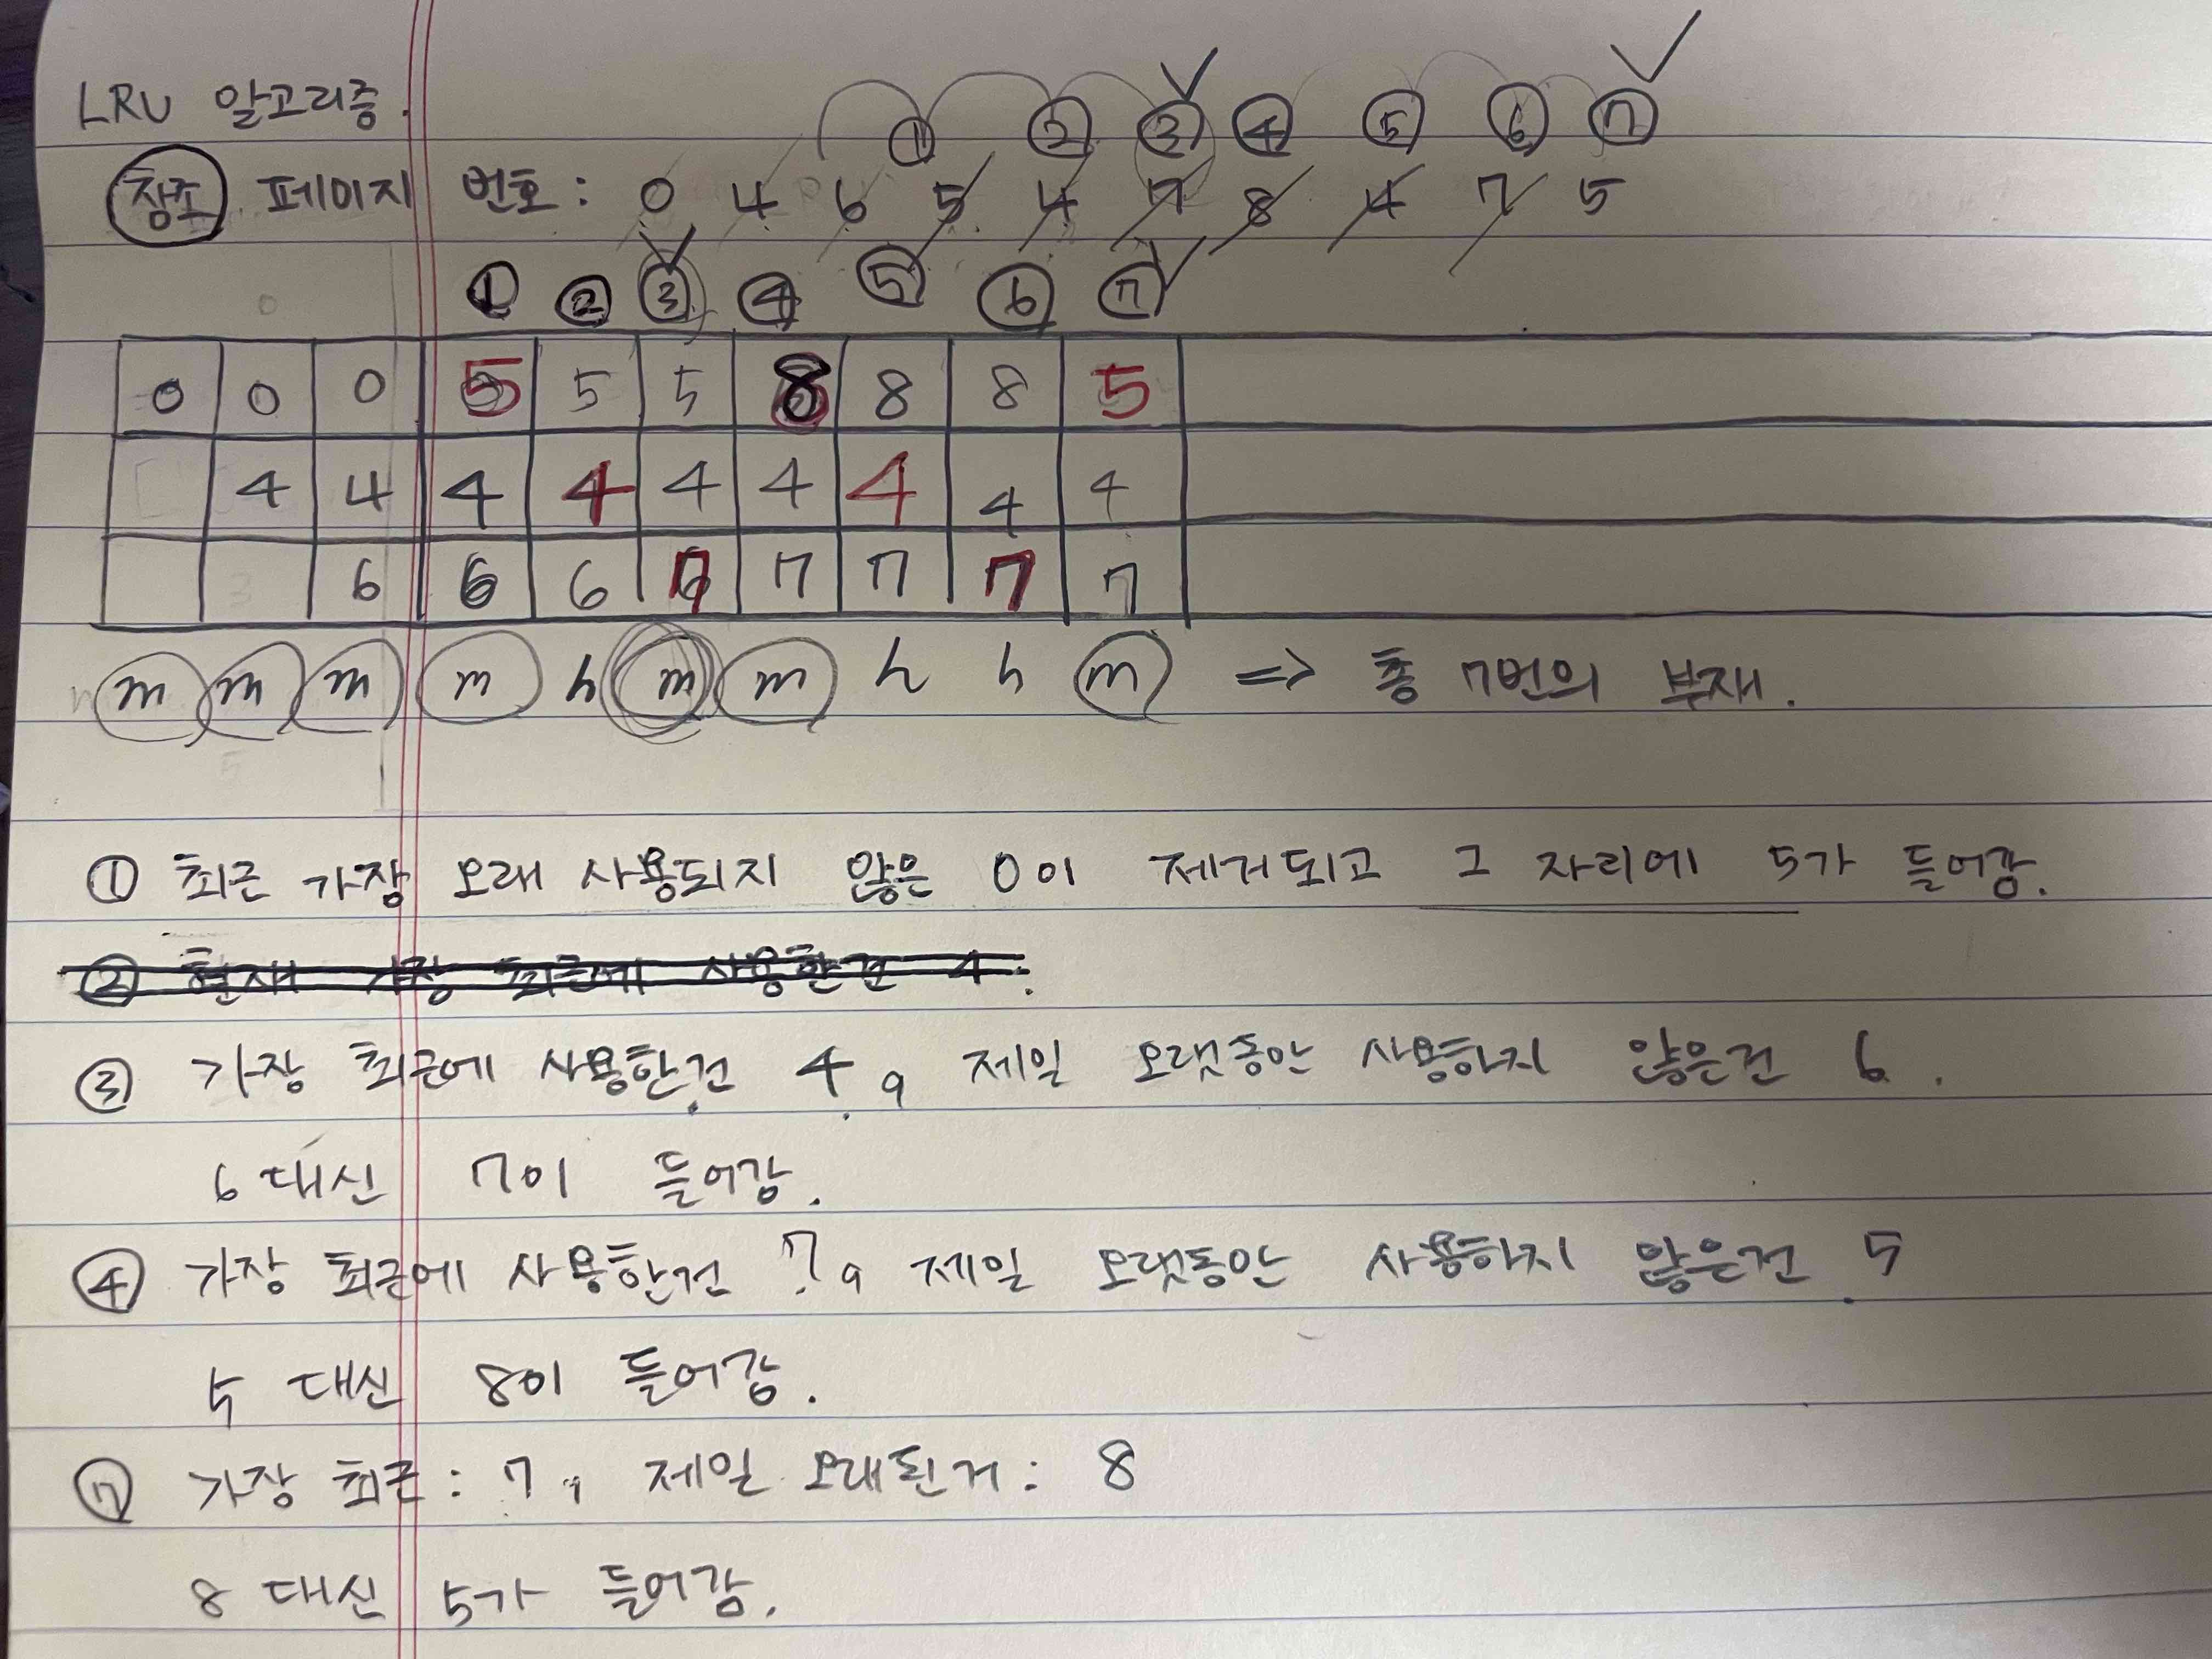 LRU 알고리즘.
① ② ③ ④ ⑤ ⑥ ⑦
참조 페이지 번호 : 0 4 6 5 4 7 8 4 7 5
① ② ③ ④ ⑤ ⑥ ⑦
0 0 0 5 5 5 8 8 8 5
4 4 4 4 4 4 4 4 4
6 6 6 7 7 7 7 7
m m m m h m m h h m => 총 7번의 부재.
① 최근 가장 오래 사용되지 않은 0이 제거되고 그 자리에 5가 들어감.
② 현재 가장 최근에 사용한건 4.
③ 가장 최근에 사용한건 4, 제일 오랫동안 사용하지 않은건 6.
6 대신 7이 들어감.
④ 가장 최근에 사용한건 7, 제일 오랫동안 사용하지 않은건 5
5 대신 8이 들어감.
⑦ 가장 최근 : 7, 제일 오래된거 : 8
8 대신 5가 들어감.